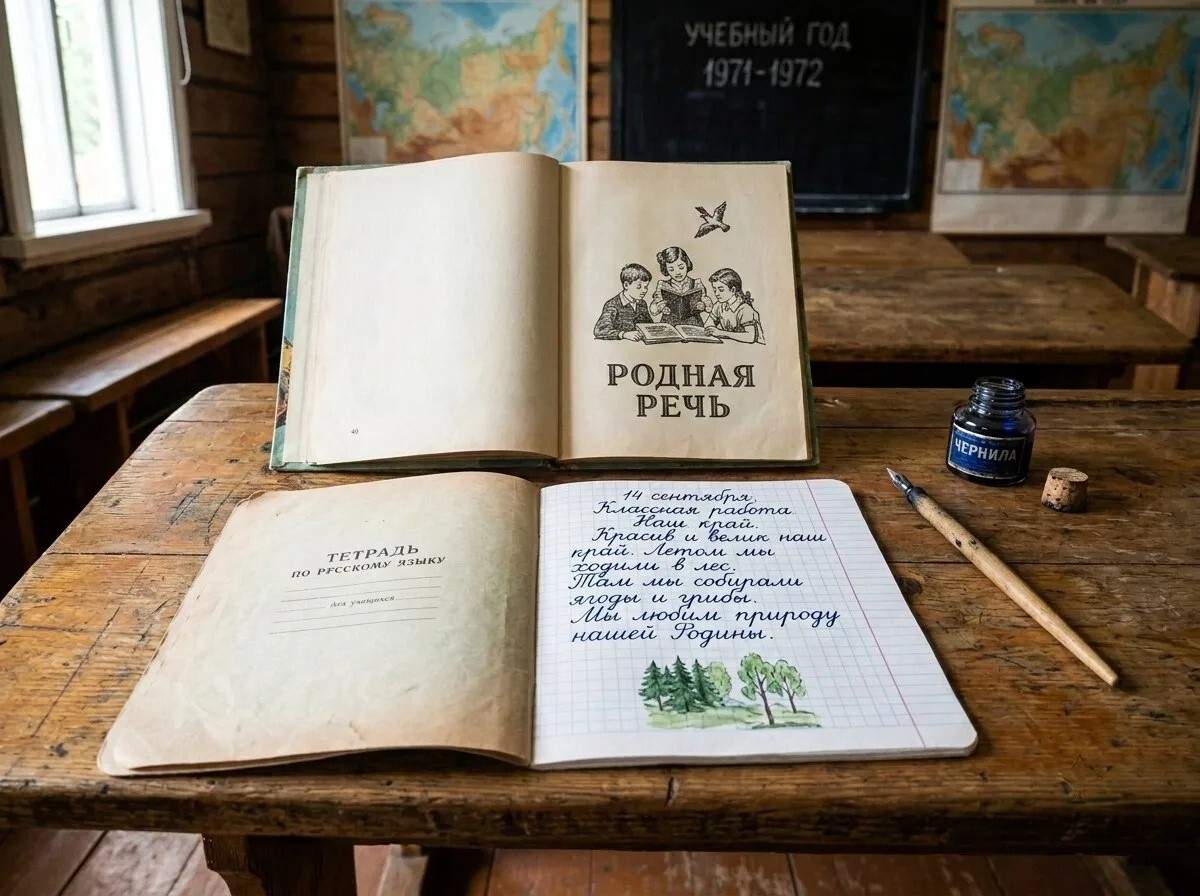 УЧЕБНЫЙ ГОД
1971-1972
40
РОДНАЯ
РЕЧЬ
ЧЕРНИЛА
ТЕТРАДЬ
ПО РУССКОМУ ЯЗЫКУ
для учащихся
14 сентября.
Классная работа
Наш край.
Красив и велик наш
край. Летом мы
ходили в лес.
Там мы собирали
ягоды и грибы.
Мы любим природу
нашей Родины.